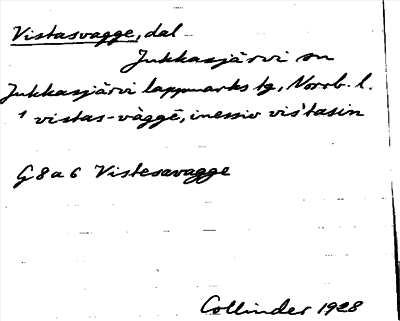 Vistasvagge, dal
Jukkasjärvi sn
Jukkasjärvi lappmarks tg, Norrb. l.
¹ vistas-vàggē, inessiv vis'tasin
G 8 a 6 Vistesavagge
Collinder 1928